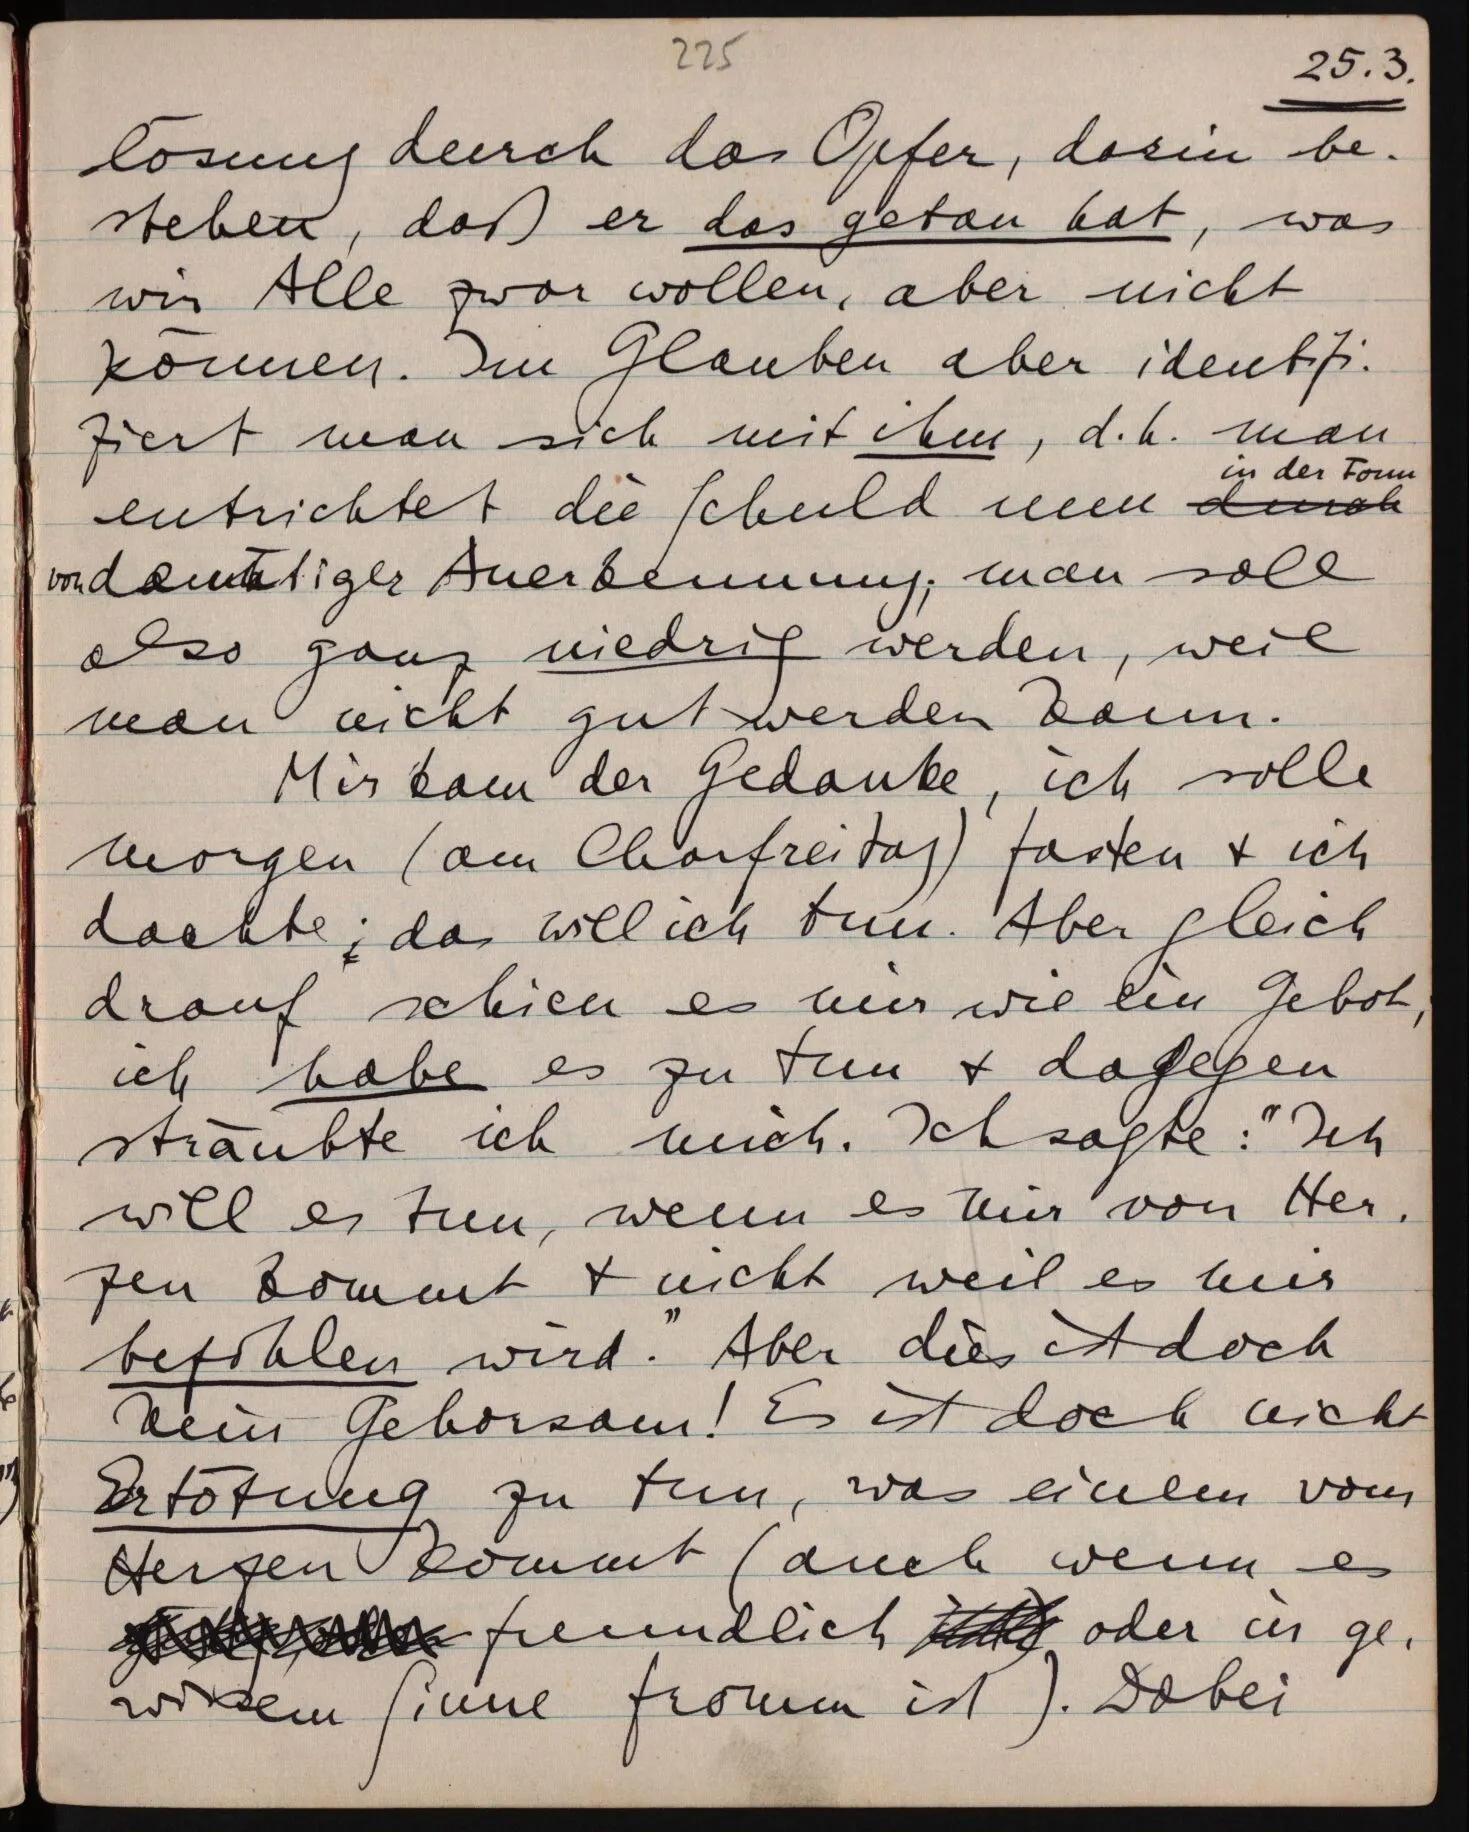 225
25.3.
lösung durch das Opfer, darin be-
stehen, daß er das getan hat, was
wir Alle zwar wollen, aber nicht
können. Im Glauben aber identifi-
ziert man sich mit ihm, d.h. man
in der Form
entrichtet die Schuld nun durch
von demütiger Anerkennung; man soll
also ganz niedrig werden, weil
man nicht gut werden kann.
Mir kam der Gedanke, ich solle
morgen (am Charfreitag) fasten + ich
dachte; das will ich tun. Aber gleich
drauf schien es mir wie ein Gebot,
ich habe es zu tun + dagegen
sträubte ich mich. Ich sagte: "Ich
will es tun, wenn es mir von Her-
zen kommt + nicht weil es mir
befohlen wird." Aber dies ist doch
kein Gehorsam! Es ist doch nicht
Ertötung zu tun, was einem vom
Herzen kommt (auch wenn es
freundlich oder in ge-
wissem Sinne fromm ist). Dabei